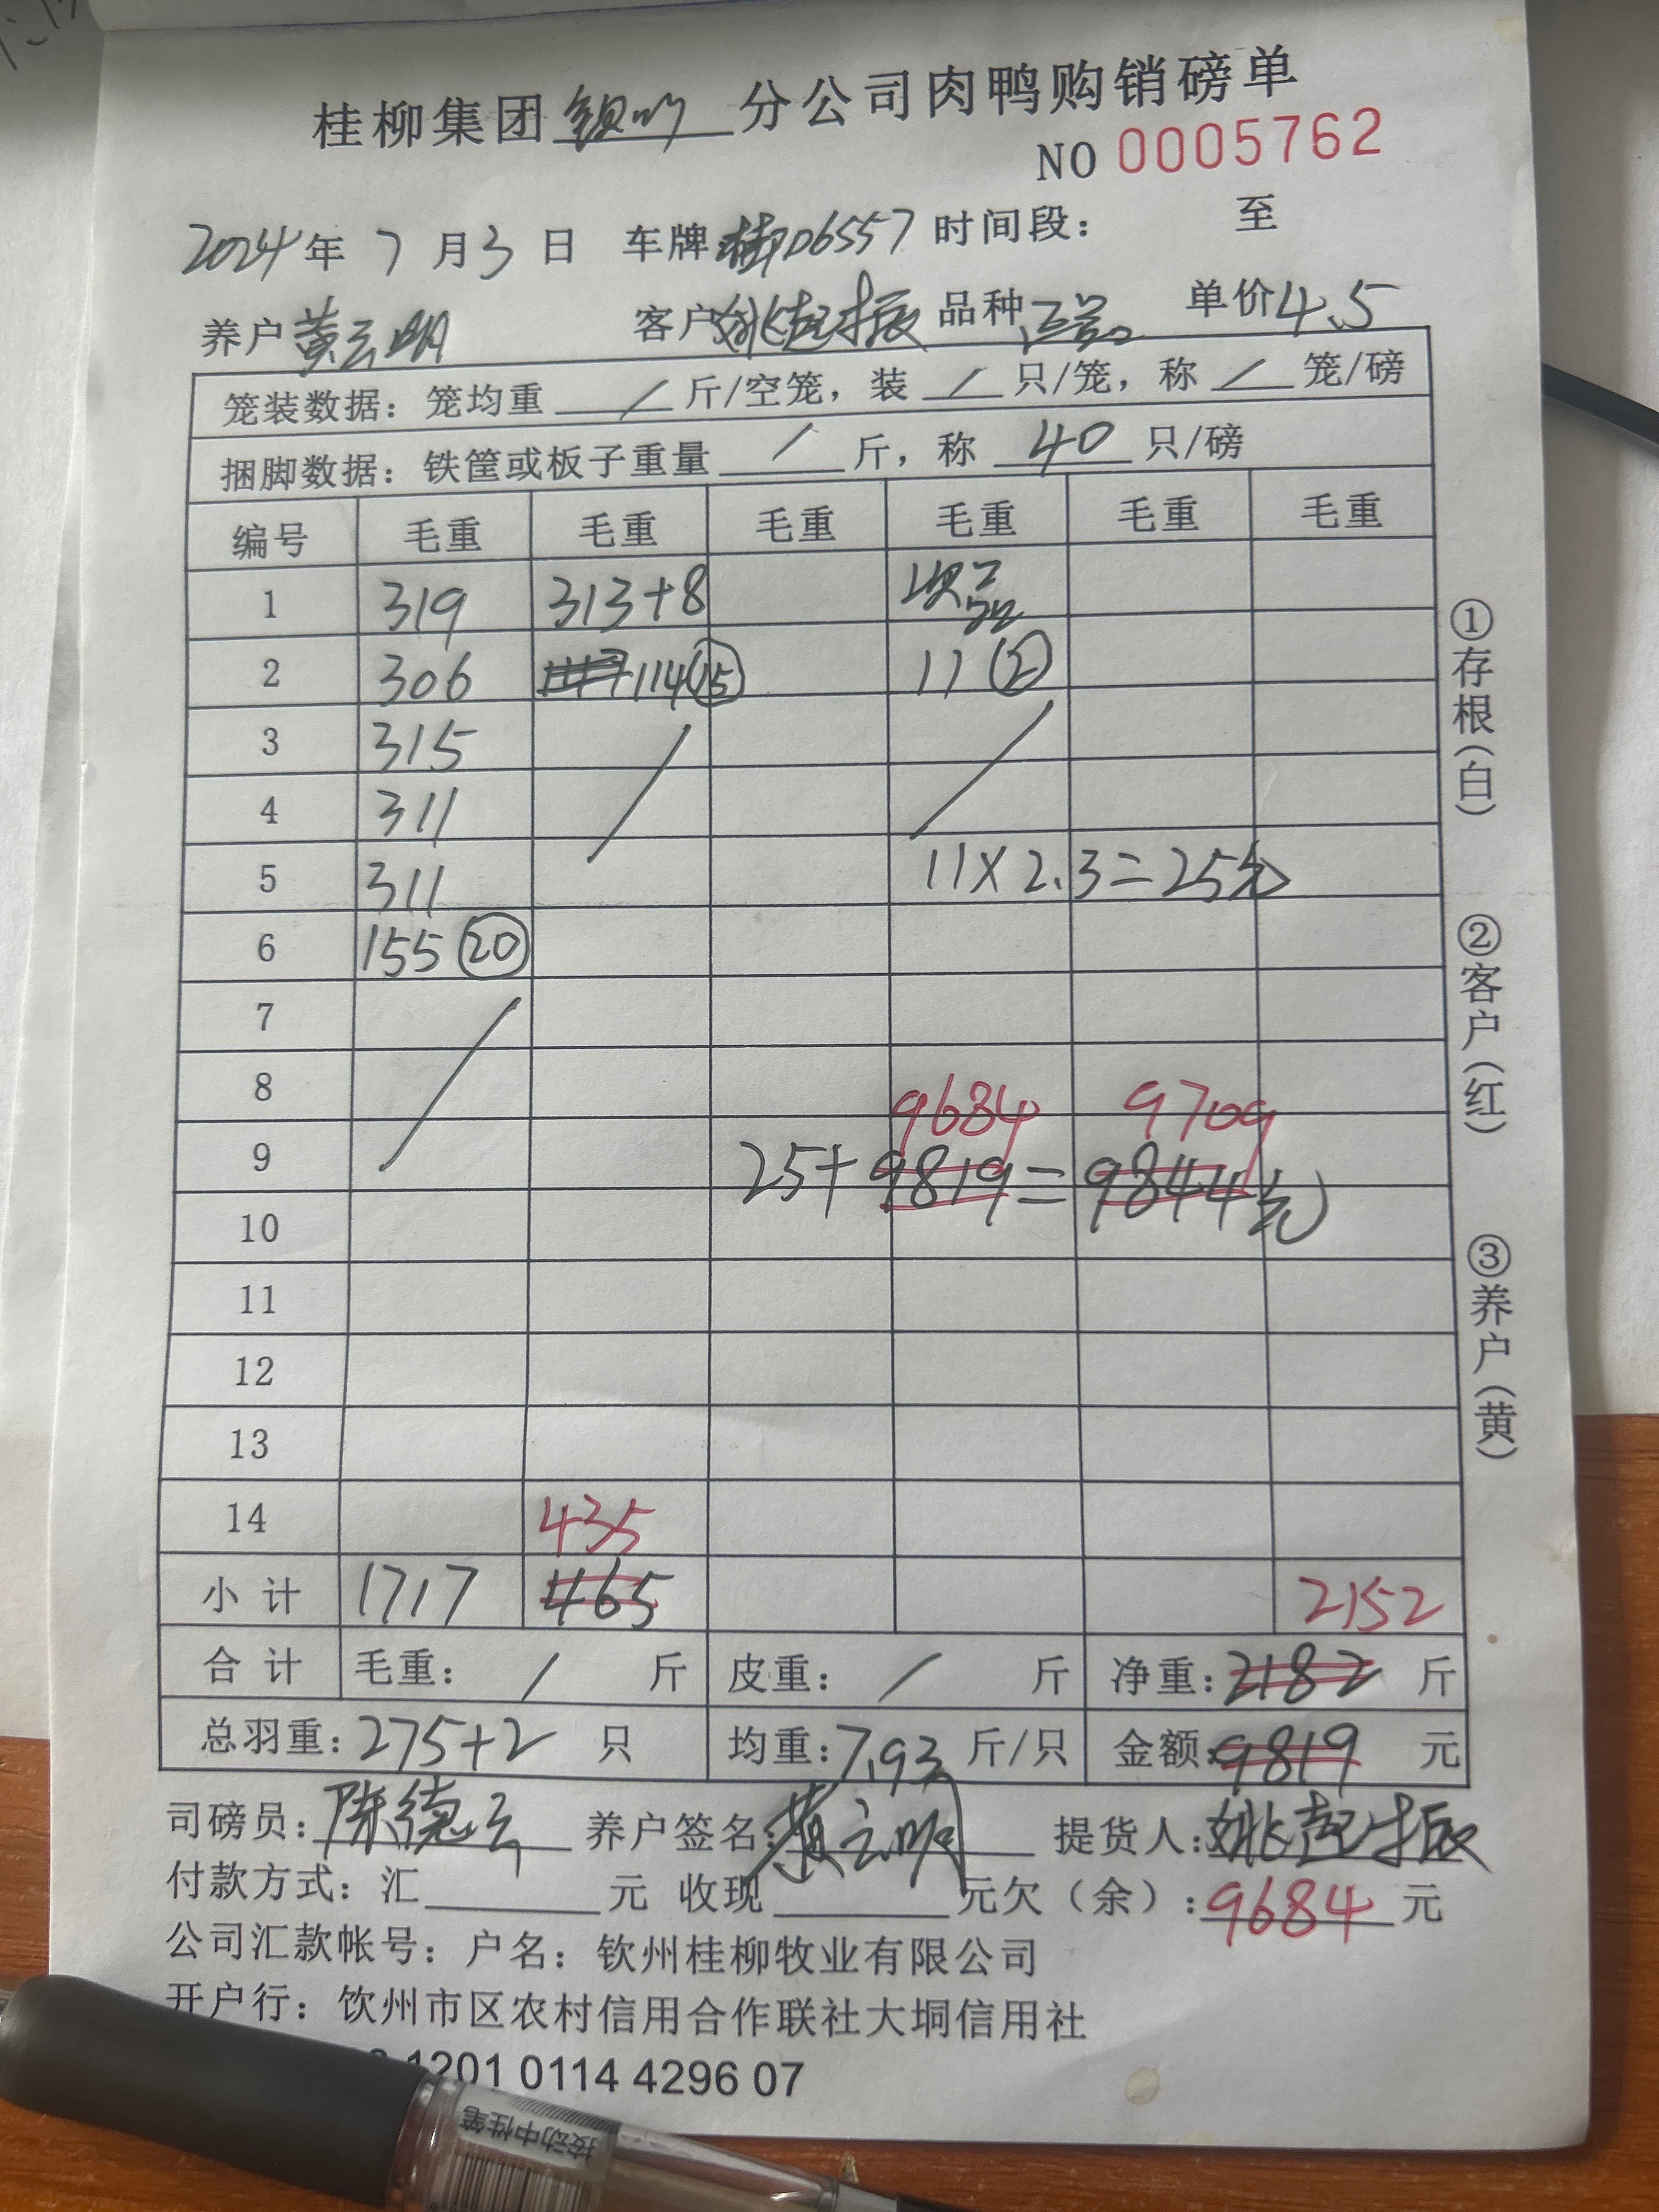 桂柳集团钦州分公司肉鸭购销磅单
NO 0005762
2024年 7月3日 车牌桂D6557 时间段： 至
养户黄云明 客户姚起振 品种 单价4.5
笼装数据：笼均重 / 斤/空笼，装 / 只/笼，称 / 笼/磅
捆脚数据：铁筐或板子重量 / 斤，称 40 只/磅
编号 毛重 毛重 毛重 毛重 毛重 毛重
1 319 313+8 次品
2 306 114⑮ 11②
3 315
4 311
5 311 11×2.3=25元
6 155⑳
7
8 9684 9709
9 25+9819=9844元
10
11
12
13
14 435
小计 1717 465 2152
合计 毛重： / 斤 皮重： / 斤 净重：2182 斤
总羽重：275+2 只 均重：7.93 斤/只 金额：9819 元
司磅员：陈德云 养户签名：黄云明 提货人：姚起振
付款方式：汇 元 收现 元欠（余）：9684元
公司汇款帐号：户名：钦州桂柳牧业有限公司
开户行：饮州市区农村信用合作联社大垌信用社
1201 0114 4296 07
①存根（白）
②客户（红）
③养户（黄）
按动中性笔